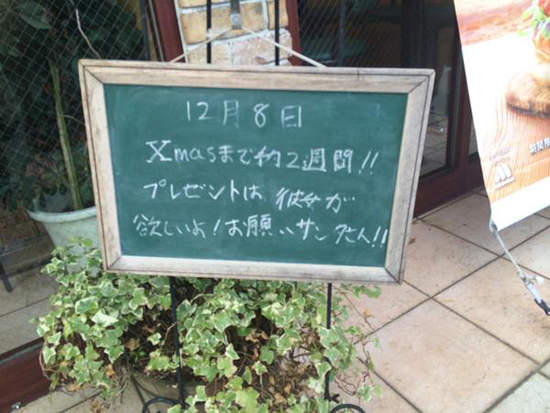 12月8日
Xmasまで約2週間!!
プレゼントは彼女が
欲しいよ!お願いサンタさん!!